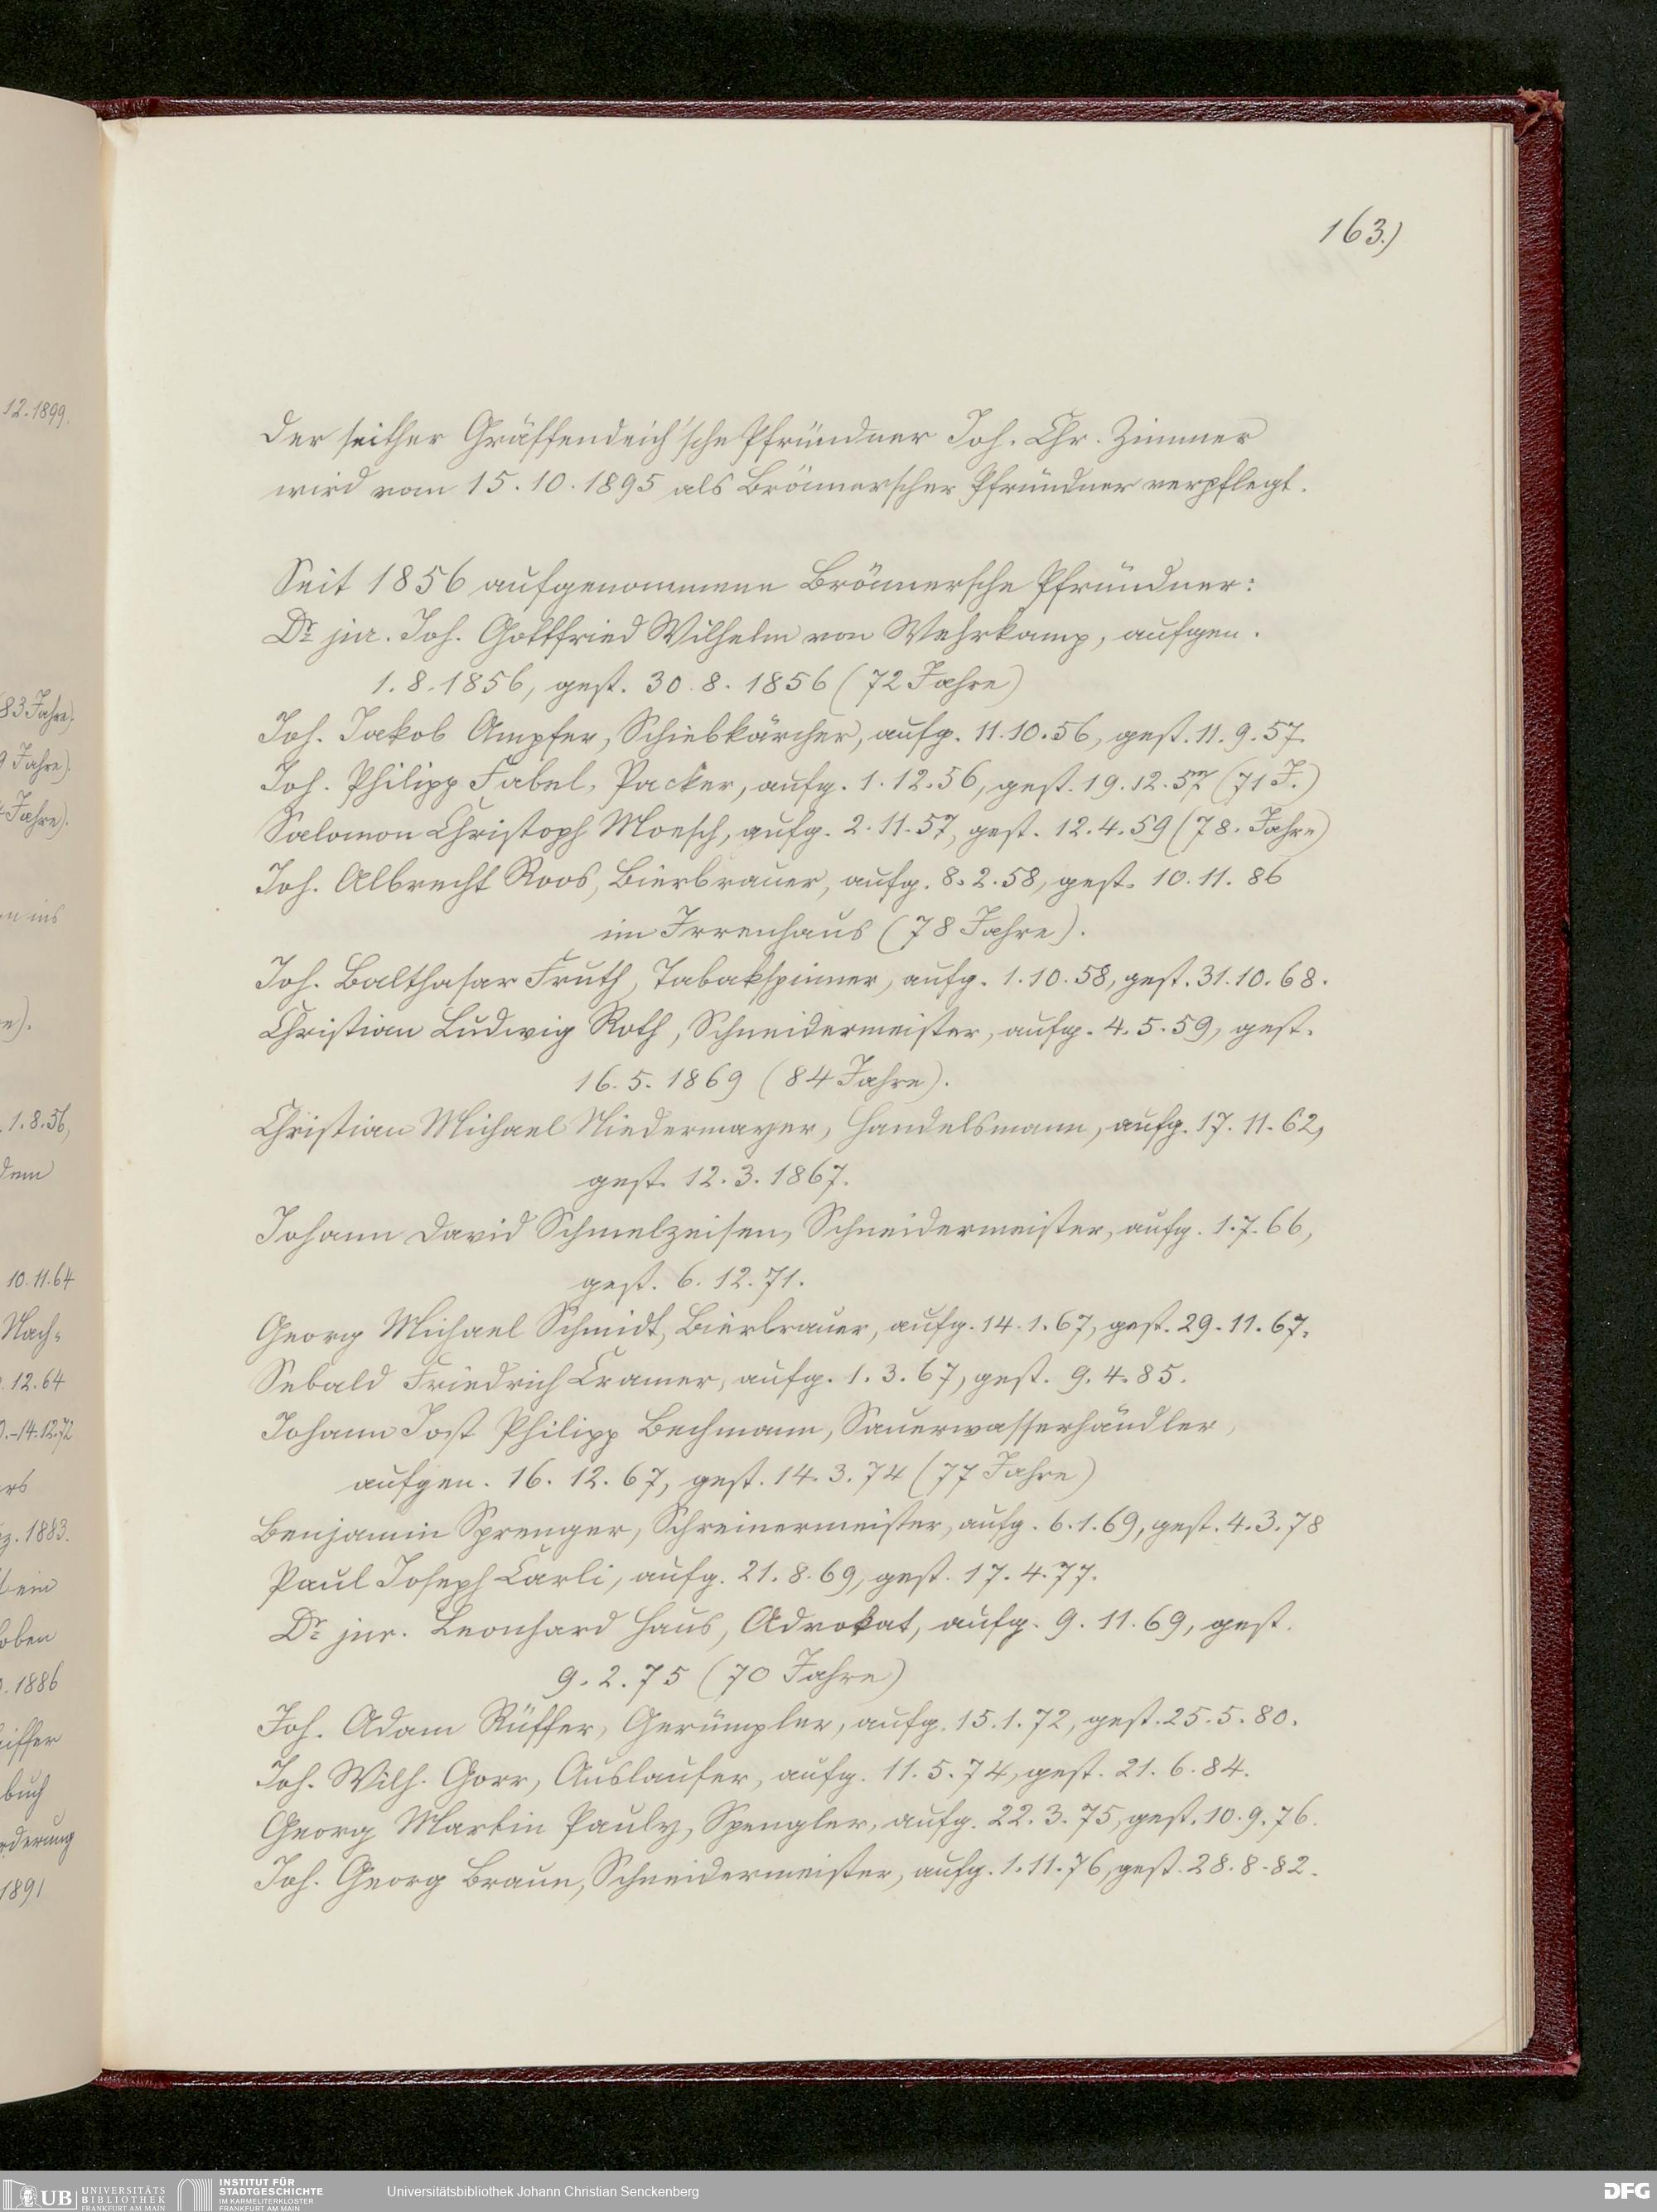 163.)
Der seither Gräffendeich'sche Pfründner Joh. Chr. Zimmer
wird vom 15.10.1895 als Brönnerscher Pfründner verpflegt.
Seit 1856 aufgenommene Brönnersche Pfründner:
Dr jur. Joh. Gottfried Wilhelm von Wehrkamp, aufgen.
1.8.1856, gest. 30.8.1856 (72 Jahre)
Joh. Jakob Ampfer, Schiebkärcher, aufg. 11.10.56, gest. 11.9.57.
Joh. Philipp Fabel, Packer, aufg. 1.12.56, gest. 19.12.57 (71 J.)
Salomon Christoph Moesch, aufg. 2.11.57, gest. 12.4.59 (78. Jahre)
Joh. Albrecht Roos, Bierbrauer, aufg. 8.2.58, gest. 10.11.86
im Irrenhaus (78 Jahre).
Joh. Balthasar Fruth, Tabakspinner, aufg. 1.10.58, gest. 31.10.68.
Christian Ludwig Roth, Schneidermeister, aufg. 4.5.59, gest.
16.5.1869 (84 Jahre).
Christian Michael Niedermayer, Handelsmann, aufg. 17.11.62,
gest. 12.3.1867.
Johann David Schmelzeisen, Schneidermeister, aufg. 1.7.66,
gest. 6.12.71.
Georg Michael Schmidt, Bierbrauer, aufg. 14.1.67, gest. 29.11.67.
Sebald Friedrich Cramer, aufg. 1.3.67, gest. 9.4.85.
Johann Jost Philipp Bechmann, Sauerwasserhändler,
aufgen. 16.12.67, gest. 14.3.74 (77 Jahre)
Benjamin Sprenger, Schreinermeister, aufg. 6.1.69, gest. 4.3.78
Paul Joseph Carli, aufg. 21.8.69, gest. 17.4.77.
Dr jur. Leonhard Haus, Advokat, aufg. 9.11.69, gest.
9.2.75 (70 Jahre)
Joh. Adam Rüffer, Gerümpler, aufg. 15.1.72, gest. 25.5.80.
Joh. Wilh. Gorr, Auslaufer, aufg. 11.5.74, gest. 21.6.84.
Georg Martin Pauly, Spengler, aufg. 22.3.75, gest. 10.9.76.
Joh. Georg Braun, Schneidermeister, aufg. 1.11.76, gest. 28.8.82.
12.1899.
83 Jahre).
9 Jahre).
Jahre).
1.8.56,
10.11.64
Nach-
12.64
-14.12.72
1883.
ein
1886
1891
UB UNIVERSITÄTS BIBLIOTHEK FRANKFURT AM MAIN
INSTITUT FÜR STADTGESCHICHTE IM KARMELITERKLOSTER FRANKFURT AM MAIN
Universitätsbibliothek Johann Christian Senckenberg
DFG